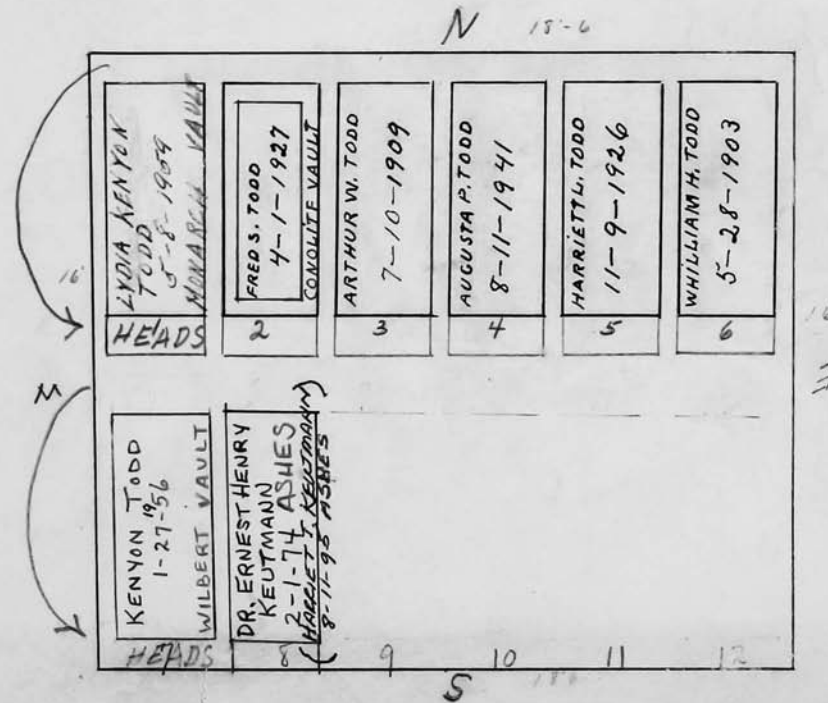 N 18-6
LYDIA KENYON
TODD
5-8-1909
MONARCH VAULT
FRED S. TODD
4-1-1927
CONOLITE VAULT
ARTHUR W. TODD
7-10-1909
AUGUSTA P. TODD
8-11-1941
HARRIETT L. TODD
11-9-1926
WHILLIAM H. TODD
5-28-1903
16
HEADS 2 3 4 5 6
KENYON TODD
1-27-1956
WILBERT VAULT
DR. ERNEST HENRY
KEUTMANN
2-1-74 ASHES
(HARRIET T. KEUTMANN)
8-11-95 ASHES
HEADS 8 9 10 11 12
S